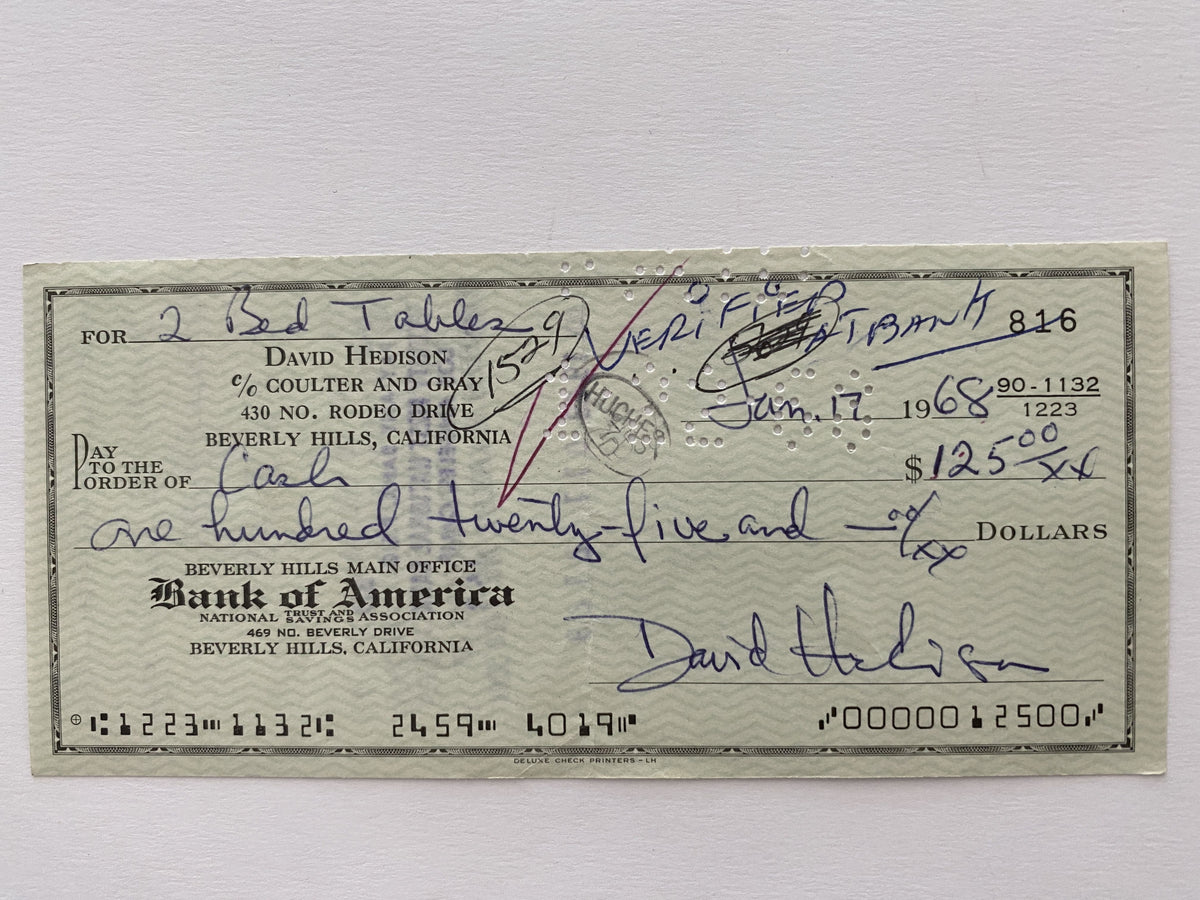 FOR 2 Bed Tables
VERIFIED AT BANK
816
DAVID HEDISON
c/o COULTER AND GRAY
1529
430 NO. RODEO DRIVE
BEVERLY HILLS, CALIFORNIA
HUGHES
Jan. 17 1968
90-1132
1223
PAY TO THE ORDER OF Cash $125 00/xx
one hundred twenty-five and — 00/xx DOLLARS
BEVERLY HILLS MAIN OFFICE
Bank of America
NATIONAL TRUST AND SAVINGS ASSOCIATION
469 NO. BEVERLY DRIVE
BEVERLY HILLS, CALIFORNIA
David Hedison
⑆1223⑉1132⑆ 2459⑉ 4019⑈ ⑇0000012500⑇
DELUXE CHECK PRINTERS – LH